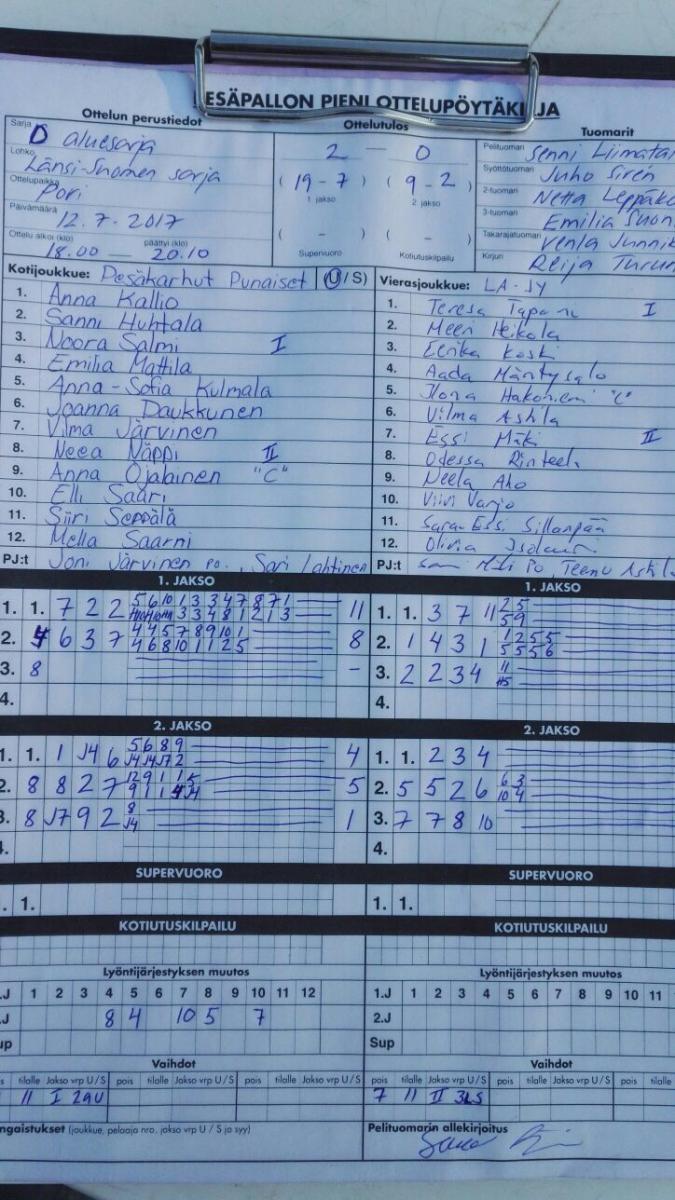 ESÄPALLON PIENI OTTELUPÖYTÄKI JA
Ottelun perustiedot
Sarja D aluesarja
Lohko Länsi-Suomen sarja
Ottelupaikka Pori
Päivämäärä 12.7.2017
Ottelu alkoi (klo) 18.00 — päättyi (klo) 20.10
Ottelutulos
2 — 0
(19-7) (9-2)
1. jakso 2. jakso
( - ) ( - )
Supervuoro Kotiutuskilpailu
Tuomarit
Pelituomari Senni Liimatai
Syöttötuomari Juho Siren
2-tuomari Netta Leppäko
3-tuomari Emilia Suon
Takarajatuomari Venla Junnik
Kirjuri Reija Turun
Kotijoukkue: Pesäkarhut Punaiset (U/S)
1. Anna Kallio
2. Sanni Huhtala
3. Noora Salmi I
4. Emilia Mattila
5. Anna-Sofia Kulmala
6. Joanna Daukkunen
7. Vilma Järvinen
8. Neea Näppi II
9. Anna Ojalainen "C"
10. Elli Saari
11. Siiri Seppälä
12. Mella Saarni
PJ:t Joni Järvinen po., Sari Lahtinen
Vierasjoukkue: LA-JY
1. Teresa I
2. Meeri Heikola
3. Eerika Koski
4. Aada Mäntysalo
5. Ilona Hakoniemi "C"
6. Vilma Ashla
7. Essi Mäki II
8. Odessa Rinteeh
9. Neela Aho
10. Viivi Varjo
11. Sara-Essi Sillanpää
12. Olivia
PJ:t Teemu
1. JAKSO
1. 1. 7 2 2 11
2. 4 6 3 7 8
3. 8 -
4.
1. JAKSO
1. 1. 3 7 11 2 5
5 9
2. 1 4 3 1 1 2 5 5
5 5 5 6
3. 2 2 3 4 11
4.
2. JAKSO
1. 1. 1 J4 6 5 6 8 9 4
2. 8 8 2 7 5
3. 8 J7 9 2 8 1
J4
4.
2. JAKSO
1. 1. 2 3 4
2. 5 5 2 6 6 3
10 4
3. 7 7 8 10
4.
SUPERVUORO
. 1.
SUPERVUORO
1. 1.
KOTIUTUSKILPAILU
KOTIUTUSKILPAILU
Lyöntijärjestyksen muutos
.J 1 2 3 4 5 6 7 8 9 10 11 12
.J 8 4 10 5 7
up
Lyöntijärjestyksen muutos
1.J 1 2 3 4 5 6 7 8 9 10 11
2.J
Sup
Vaihdot
s tilalle Jakso vrp U/S pois tilalle Jakso vrp U/S pois tilalle Jakso vrp U/S
11 I 2aU
Vaihdot
pois tilalle Jakso vrp U/S pois tilalle Jakso vrp U/S pois tilalle
7 11 II 3LS
ngaistukset (joukkue, pelaaja nro, jakso vrp U / S ja syy)
Pelituomarin allekirjoitus